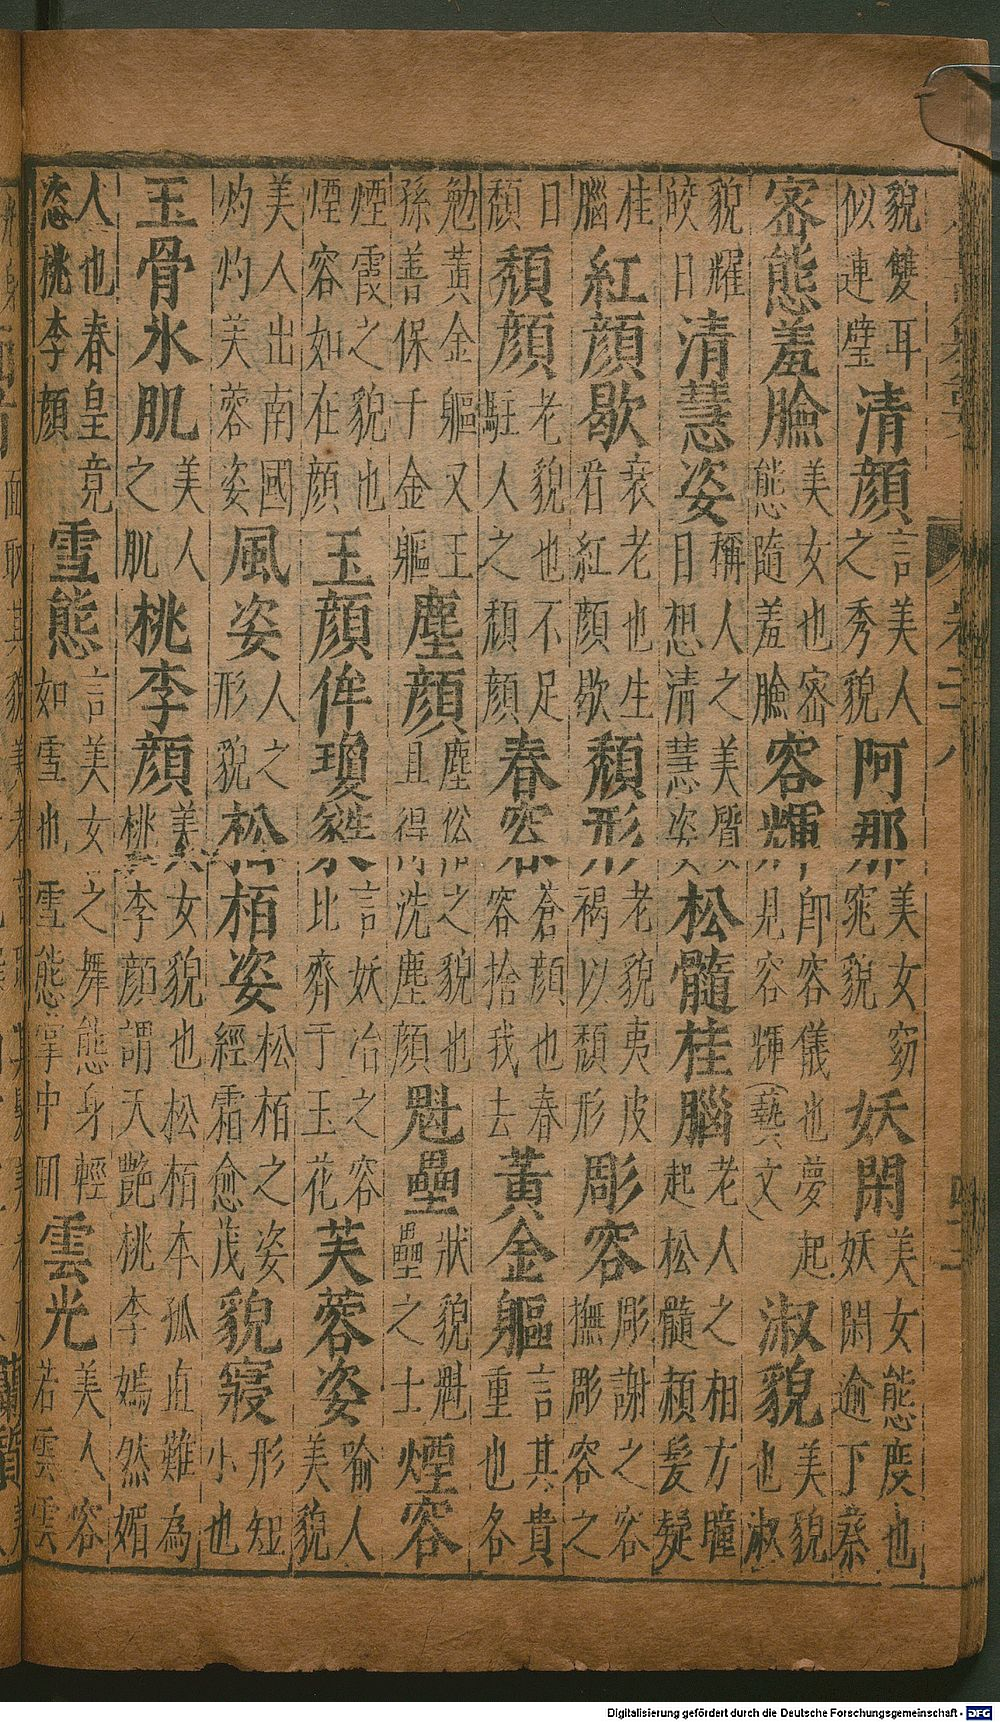 貌雙耳似連璧清顏言美人之秀貌阿那美女窈窕貌妖閑美女態度也妖閑逾下蔡
密態羞臉美女也密態隨羞臉容輝即容儀也夢起見容輝(藝文)淑貌美貌也淑
貌耀皎日清慧姿稱人之美質日想清慧姿松髓桂腦老人之相方瞳起松髓頳髮疑
桂腦紅顏歇衰老也生看紅顏歇頹形老貌夷皮褐以頹形彫容彫謝之容撫彫容之
日頹頹顏老貌也不足駐人之頹顏春容蒼顏也春容捨我去黃金軀言其貴重也各
勉黃金軀又王孫善保千金軀塵顏塵俗之貌也且得洗塵顏魁壘狀貌魁壘之士煙容
煙霞之貌也煙容如在顏玉顏侔瓊蘂言妖冶之容比齊于玉花芙蓉姿喻人美貌
美人出南國灼灼芙蓉姿風姿人之形貌松栢姿松栢之姿經霜愈茂貌寢形短小也
玉骨氷肌美人之肌桃李顏美女貌也松栢本孤直難為桃李顏謂天艷桃李嫣然媚
人也春皇竟恣桃李顏雪態言美女之舞態身輕如雪也雪態掌中回雲光美人容若雲雲
Digitalisierung gefördert durch die Deutsche Forschungsgemeinschaft - DFG